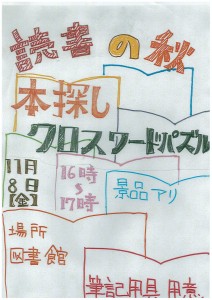 読書の秋
本探し
クロスワードパズル
11月
8日
【金】
16時
〜
17時
景品アリ
場所
図書館
筆記用具用意